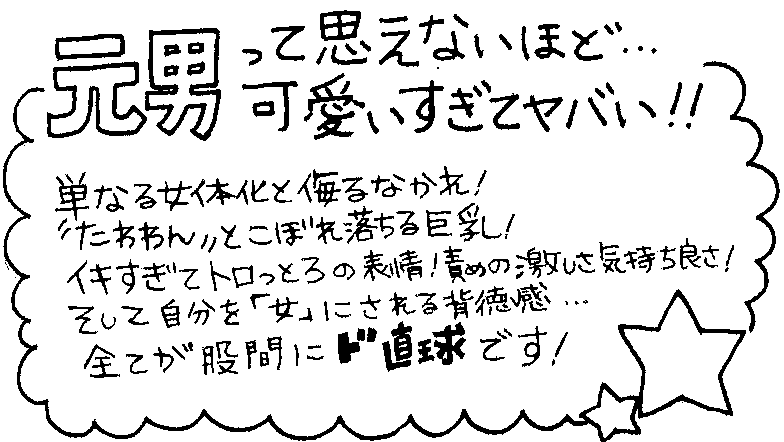 元男って思えないほど…
可愛いすぎてヤバい!!
単なる女体化と侮るなかれ!
"たわわん"とこぼれ落ちる巨乳し!
イキすぎてトロっとろの表情!責めの激しさ気持ち良さ!
そして自分を「女」にされる背徳感…
全てが股間にド直球です!